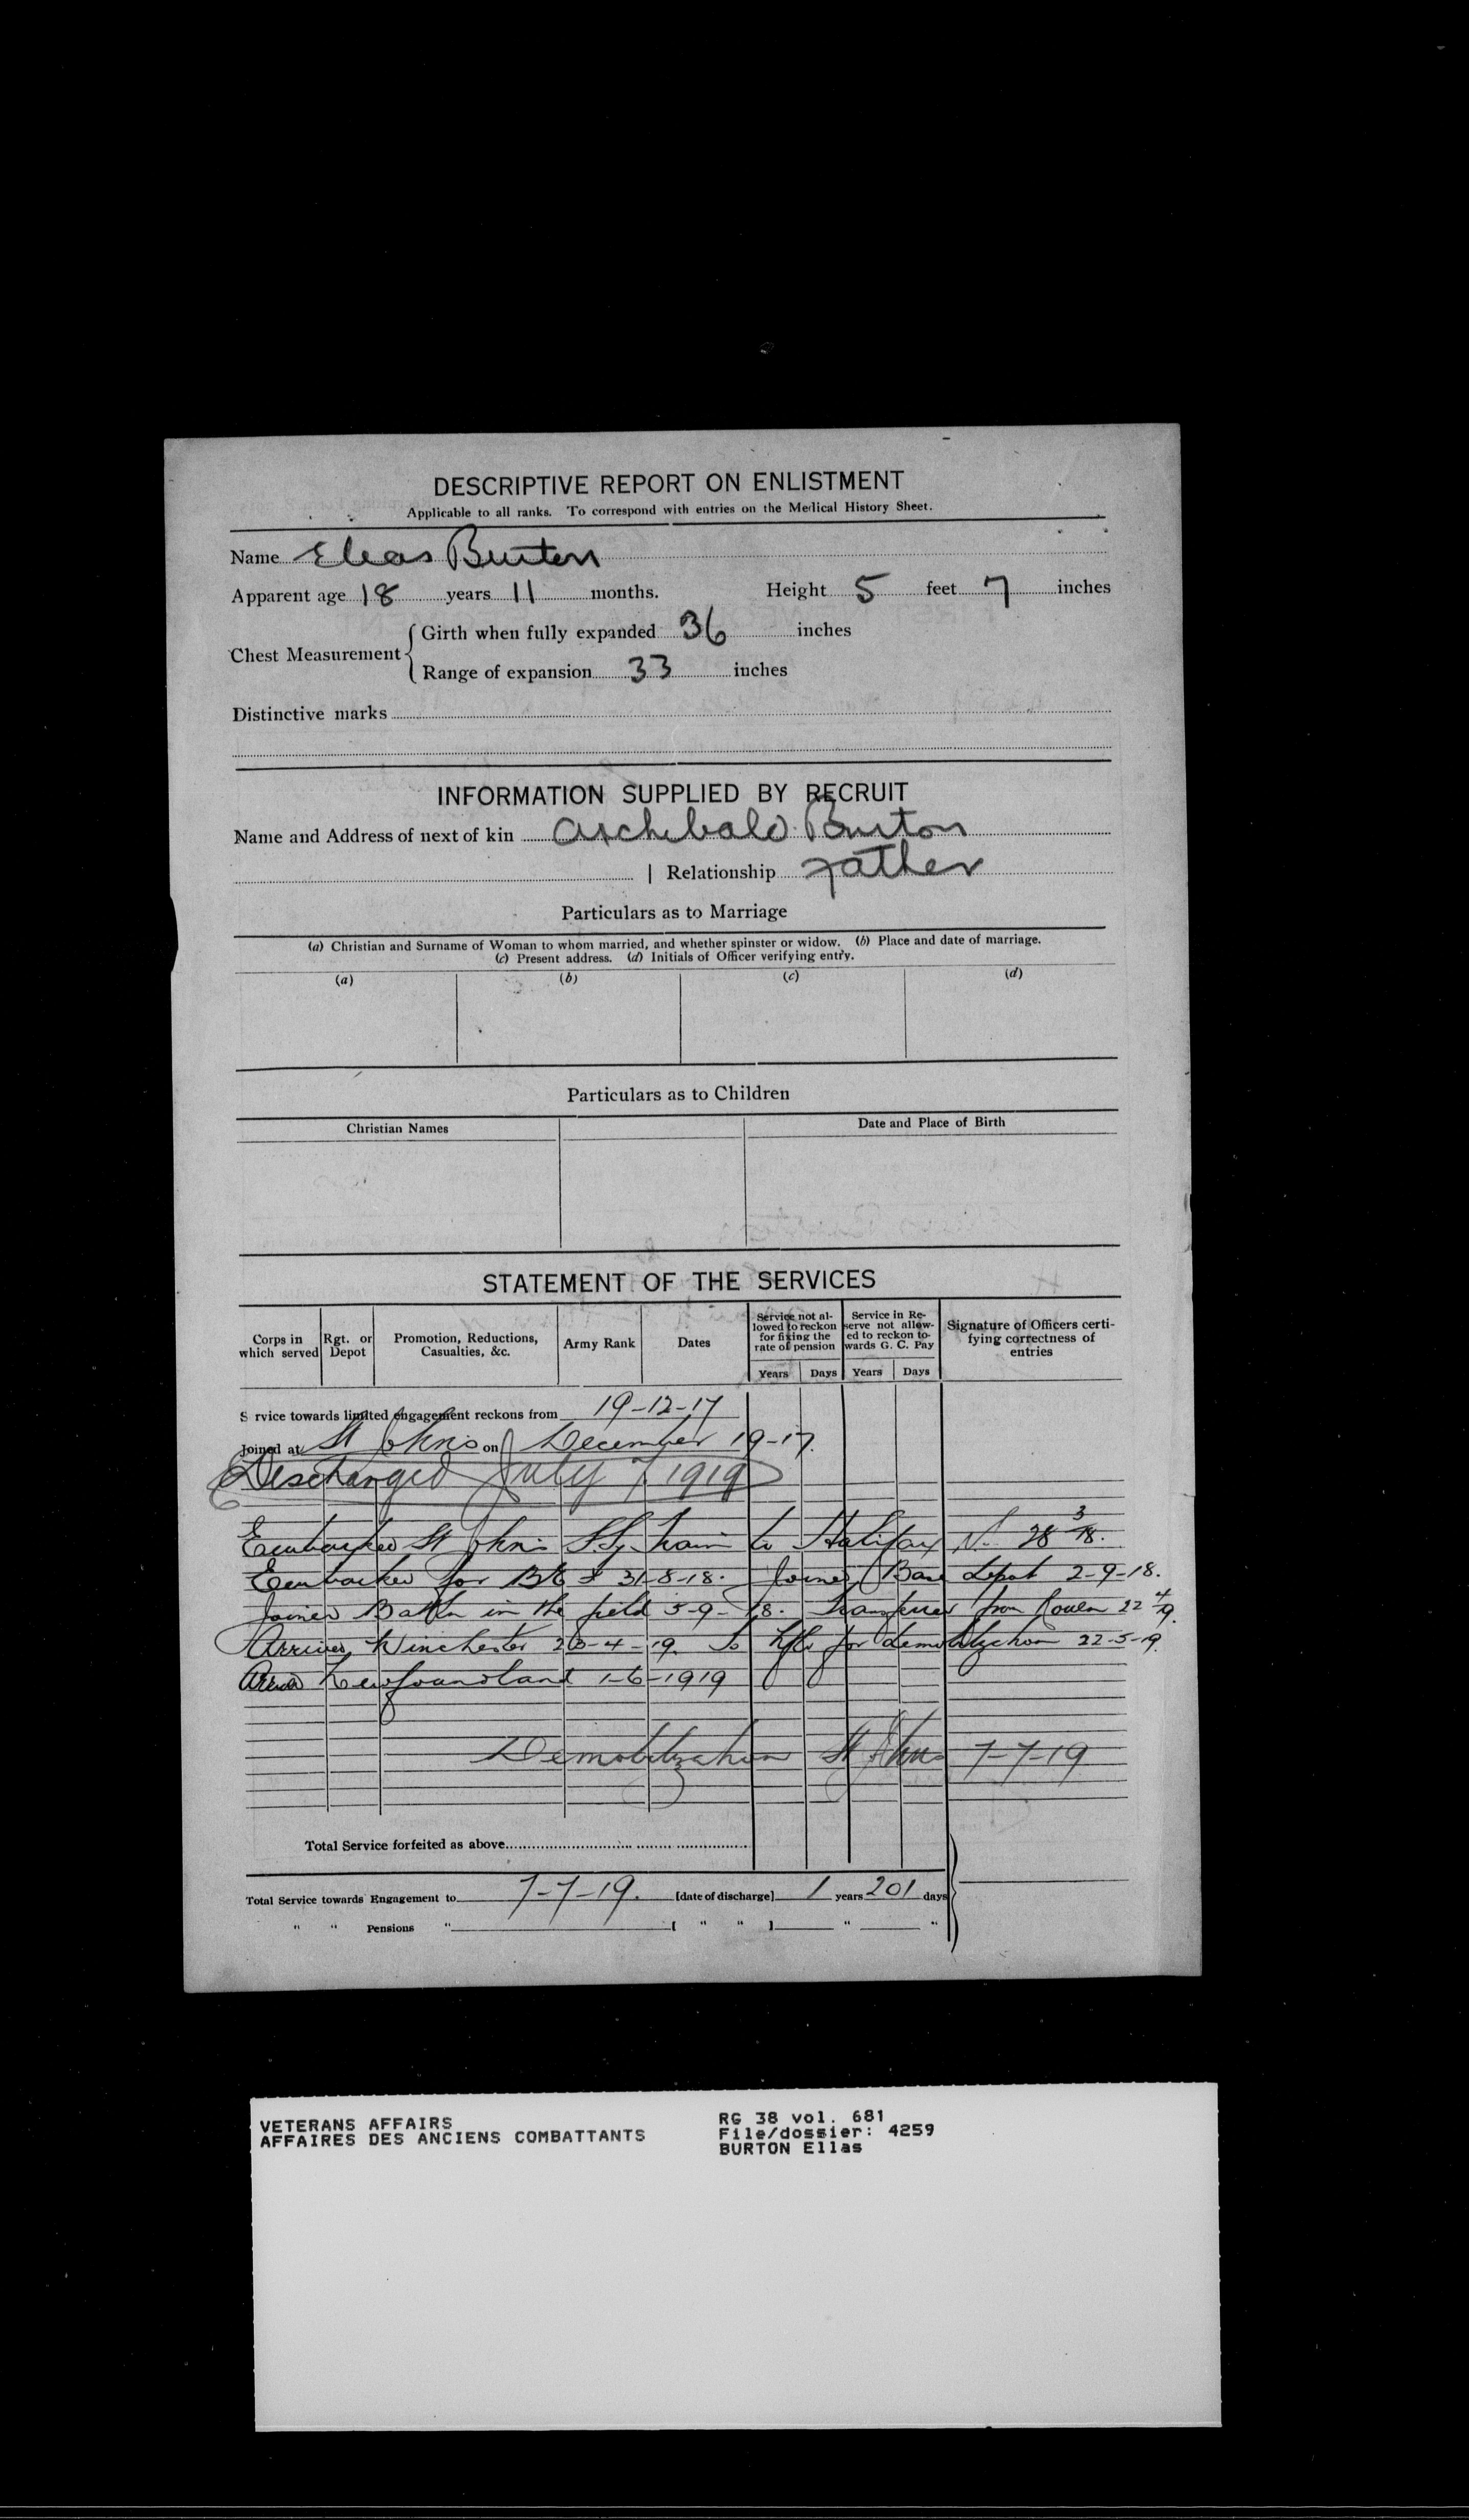 DESCRIPTIVE REPORT ON ENLISTMENT
Applicable to all ranks. To correspond with entries on the Medical History Sheet.
Name Elias Burton
Apparent age 18 years 11 months. Height 5 feet 7 inches
Girth when fully expanded 36 inches
Chest Measurement
Range of expansion 33 inches
Distinctive marks
INFORMATION SUPPLIED BY RECRUIT
Name and Address of next of kin Archibald Burton
| Relationship Father
Particulars as to Marriage
(a) Christian and Surname of Woman to whom married, and whether spinster or widow. (b) Place and date of marriage.
(c) Present address. (d) Initials of Officer verifying entry.
(a) (b) (c) (d)
Particulars as to Children
Christian Names Date and Place of Birth
STATEMENT OF THE SERVICES
Corps in which served Rgt. or Depot Promotion, Reductions, Casualties, &c. Army Rank Dates Service not allowed to reckon for fixing the rate of pension Service in Reserve not allowed to reckon towards G. C. Pay Signature of Officers certifying correctness of entries
Years Days Years Days
S rvice towards limited engagement reckons from 19-12-17
Joined at St Johns on December 19-17.
Discharged July 7 1919
Embarked St Johns train to Halifax N. 28 3/18.
Embarked for B.E.F 31-8-18. Joined Base Depot 2-9-18.
Joined Battn in the field 5-9-18. Transferred from Rouen 22 4/19.
Arrived Winchester 23-4-19. To Nfld for demobilization 22-5-19.
Arrived Newfoundland 1-6-1919
Demobilization St Johns 7-7-19
Total Service forfeited as above
Total Service towards Engagement to 7-7-19. [date of discharge] 1 years 201 days
" " Pensions " [ " " ] " "
VETERANS AFFAIRS RG 38 vol. 681
AFFAIRES DES ANCIENS COMBATTANTS File/dossier: 4259
BURTON Elias